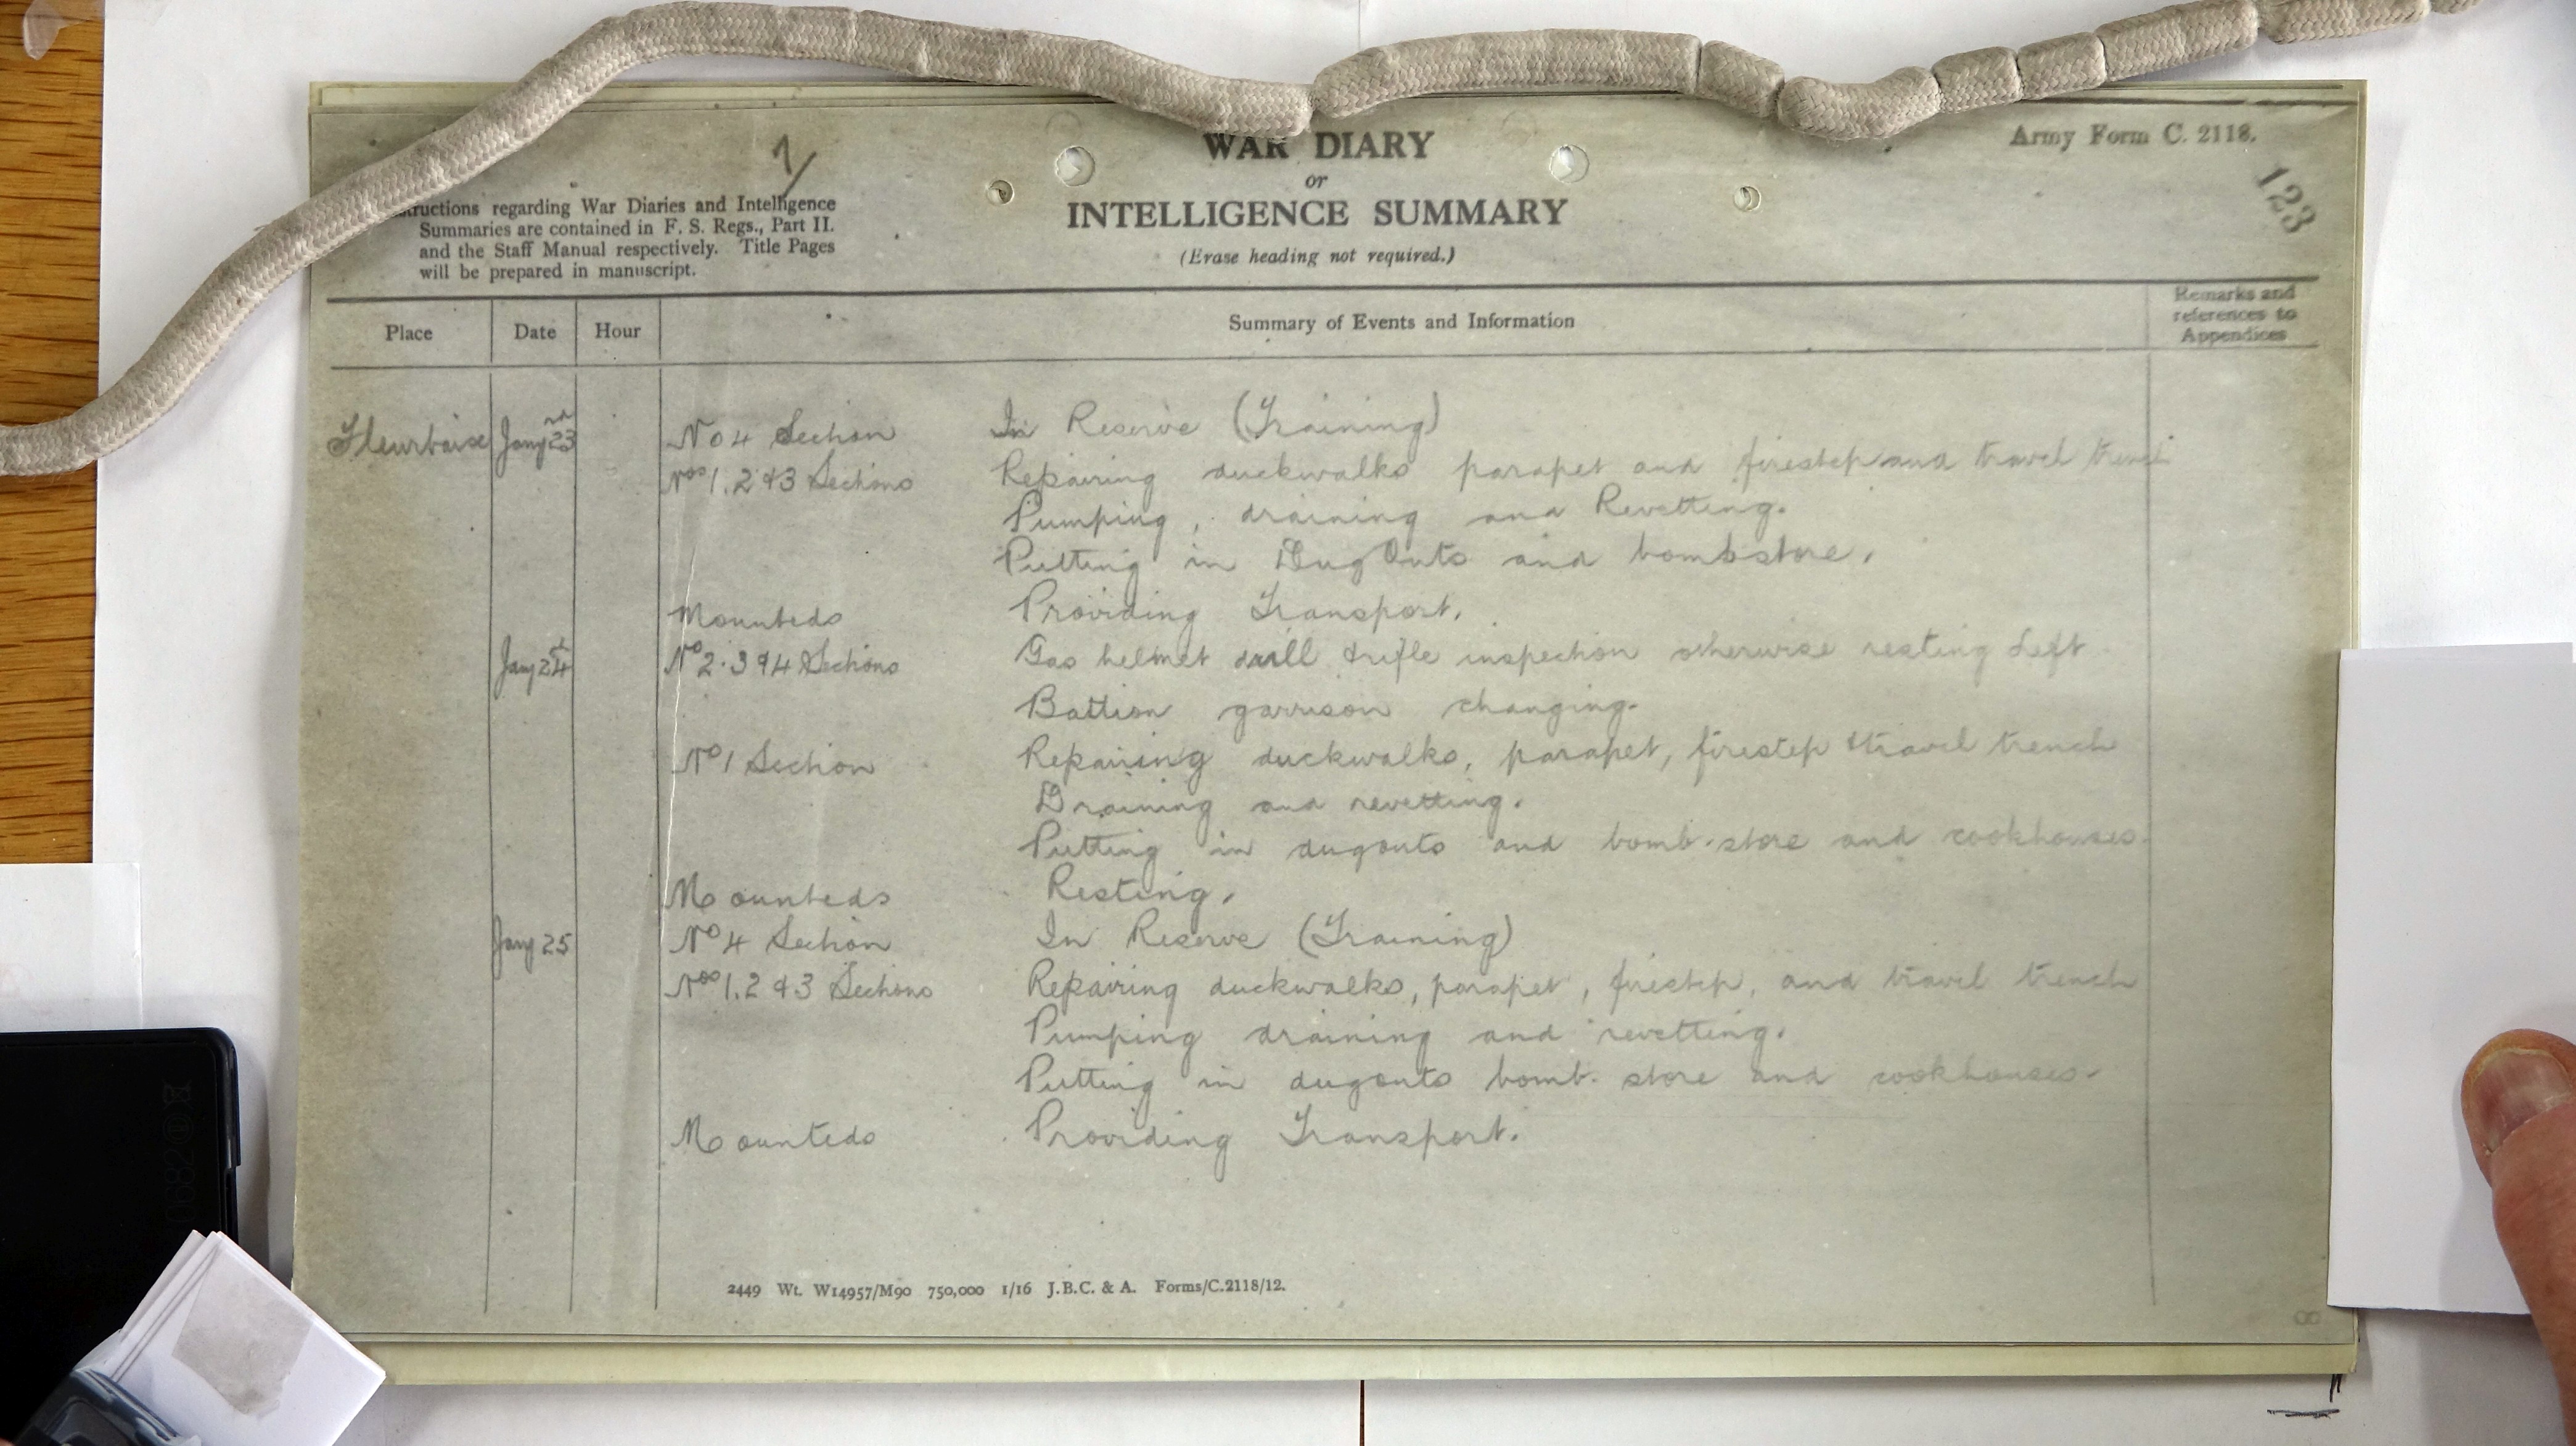 7/
WAR DIARY
or
INTELLIGENCE SUMMARY
(Erase heading not required.)
Army Form C. 2118.
123
structions regarding War Diaries and Intelligence
Summaries are contained in F. S. Regs., Part II.
and the Staff Manual respectively. Title Pages
will be prepared in manuscript.
Place Date Hour Summary of Events and Information Remarks and
references to
Appendices
Fleurbaise Jany 23rd No 4 Section In Reserve (Training)
Nos 1.2 & 3 Sections Repairing duckwalks parapet and firestep and travel trench
Pumping, draining and Revetting.
Putting in Dug Outs and bombstore.
Mounteds Providing Transport.
Jany 24th No 2.3 & 4 Sections Gas helmet drill & rifle inspection otherwise resting Left
Battion garrison changing.
No 1 Section Repairing duckwalks, parapet, firestep & travel trench
Draining and revetting.
Putting in dugouts and bomb-store and cookhouses.
Mounteds Resting.
Jany 25 No 4 Section In Reserve (Training)
Nos 1.2 & 3 Sections Repairing duckwalks, parapet, firestep, and travel trench
Pumping draining and revetting.
Putting in dugouts bomb-store and cookhouses.
Mounteds Providing Transport.
2449 Wt. W14957/M90 750,000 1/16 J.B.C. & A. Forms/C.2118/12.